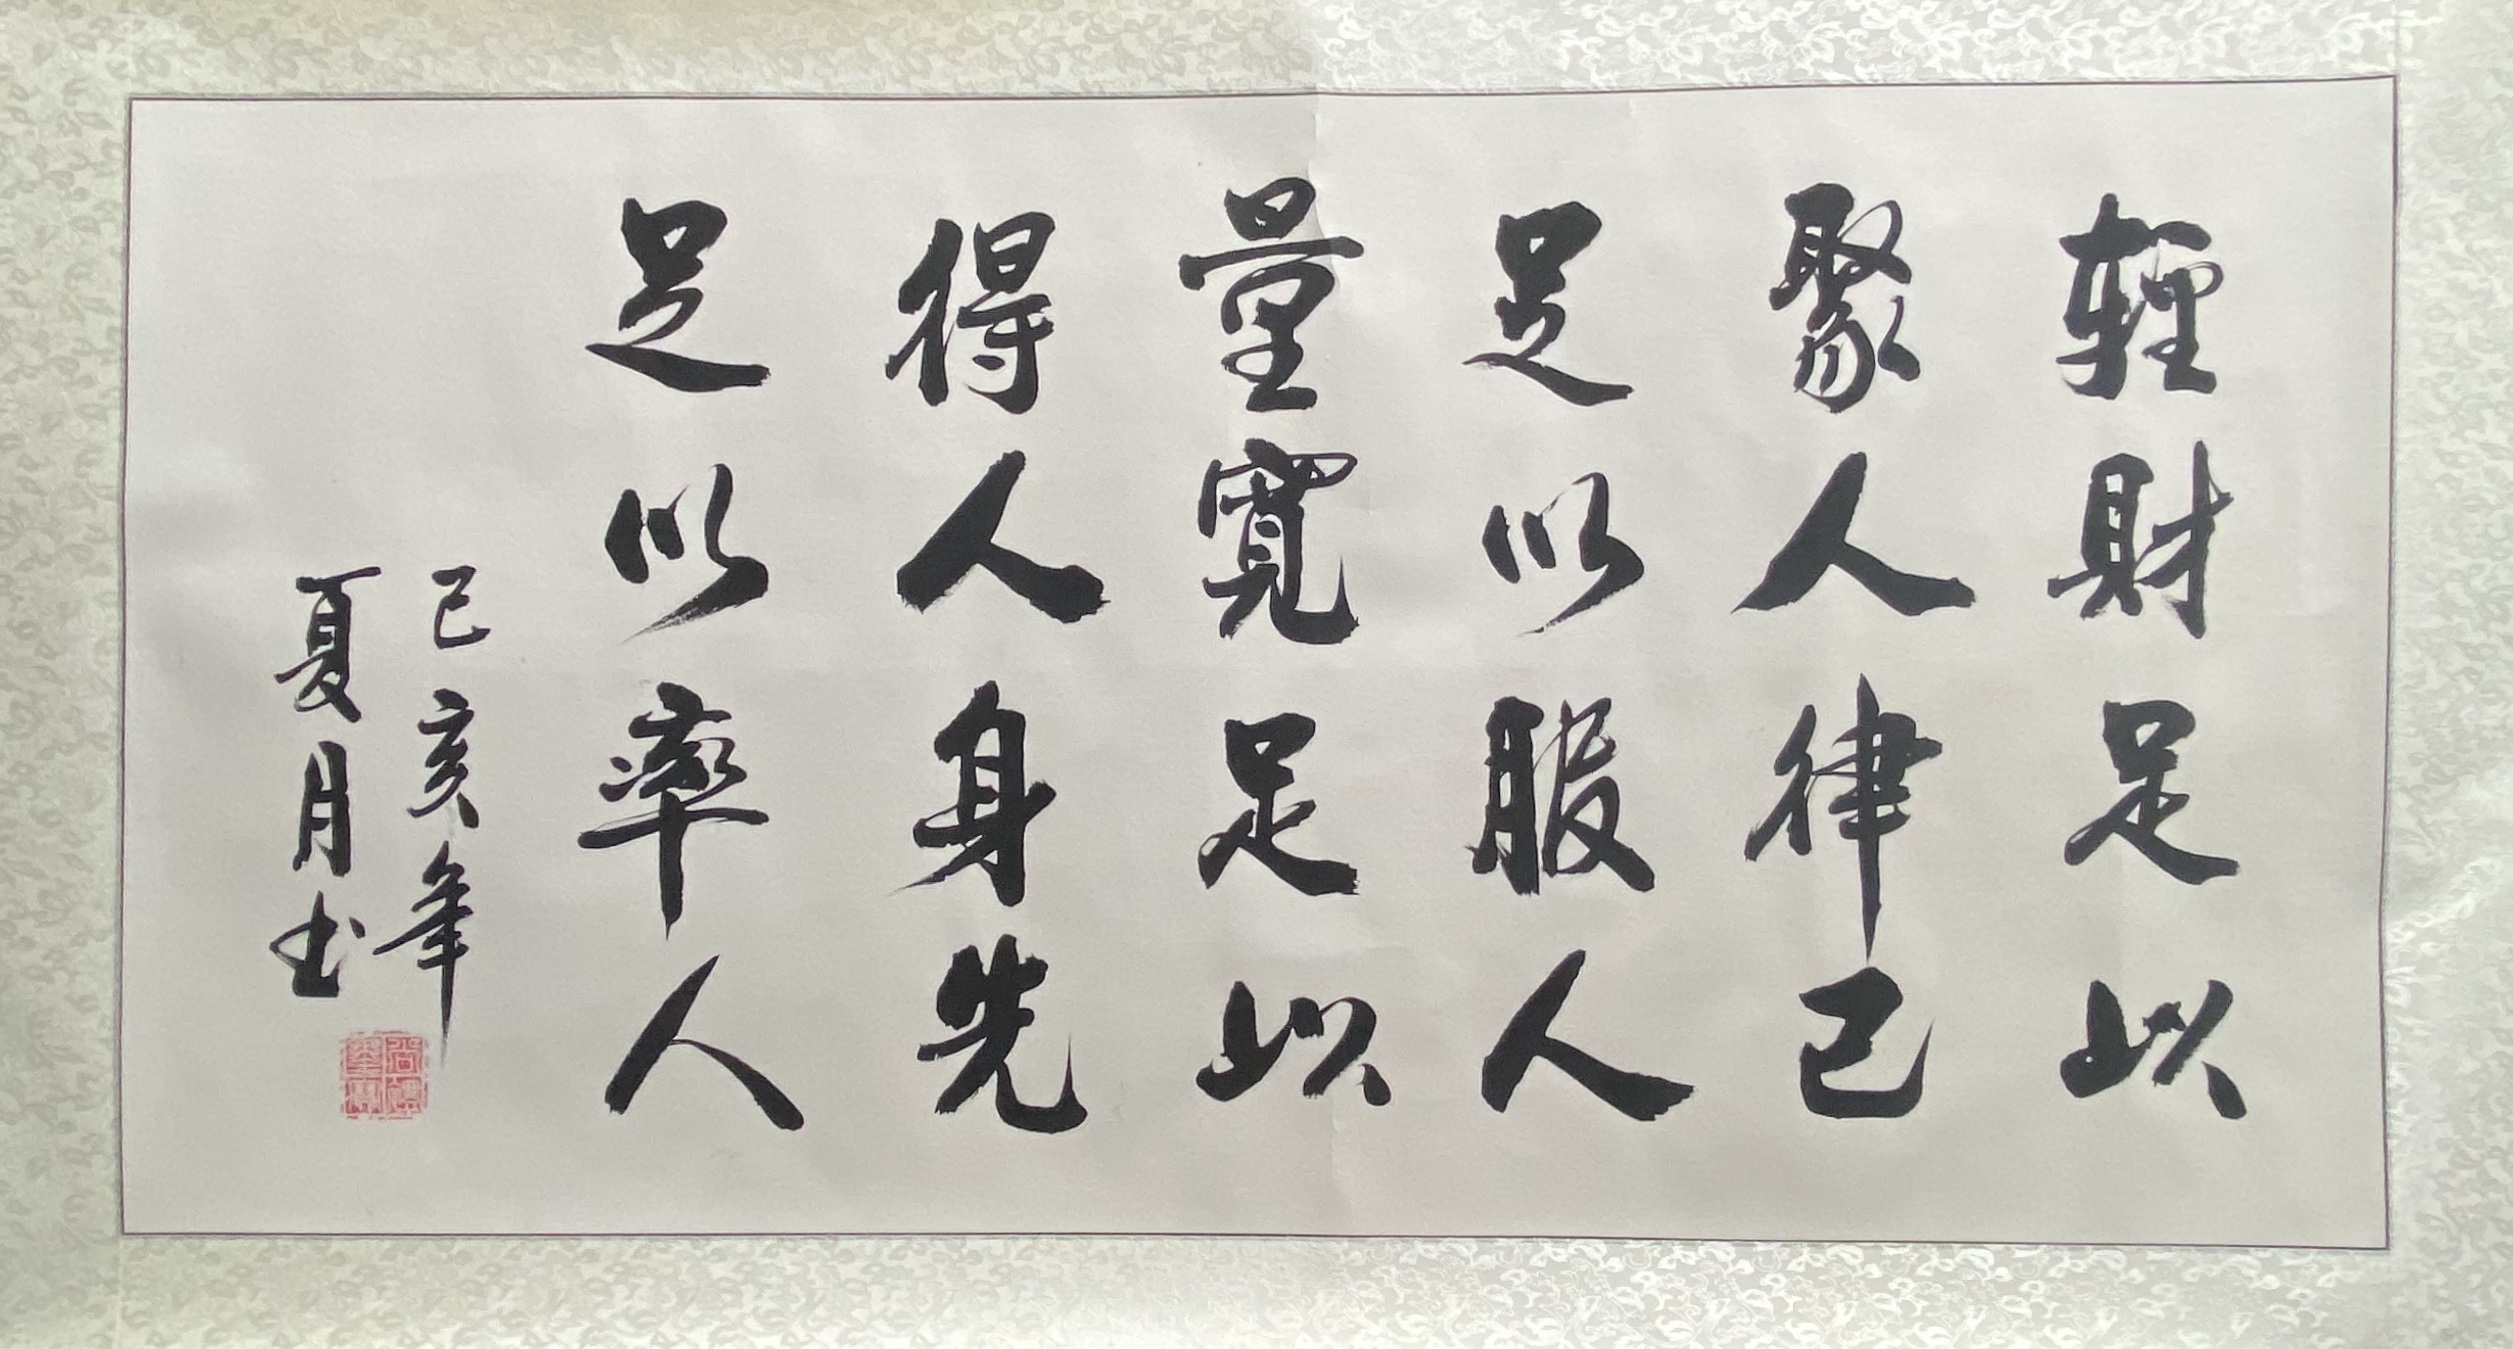 輕財足以
聚人律己
足以服人
量寬足以
得人身先
足以率人
己亥年
夏月书